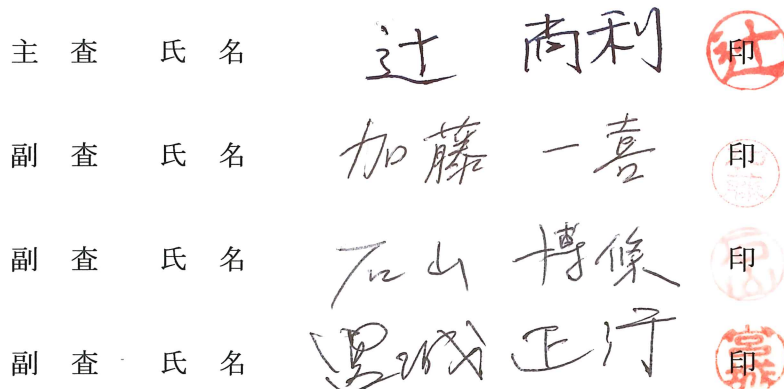 主 査 氏 名 辻 尚利 印
副 査 氏 名 加藤 一喜 印
副 査 氏 名 石山 博條 印
副 査 氏 名 城 正行 印